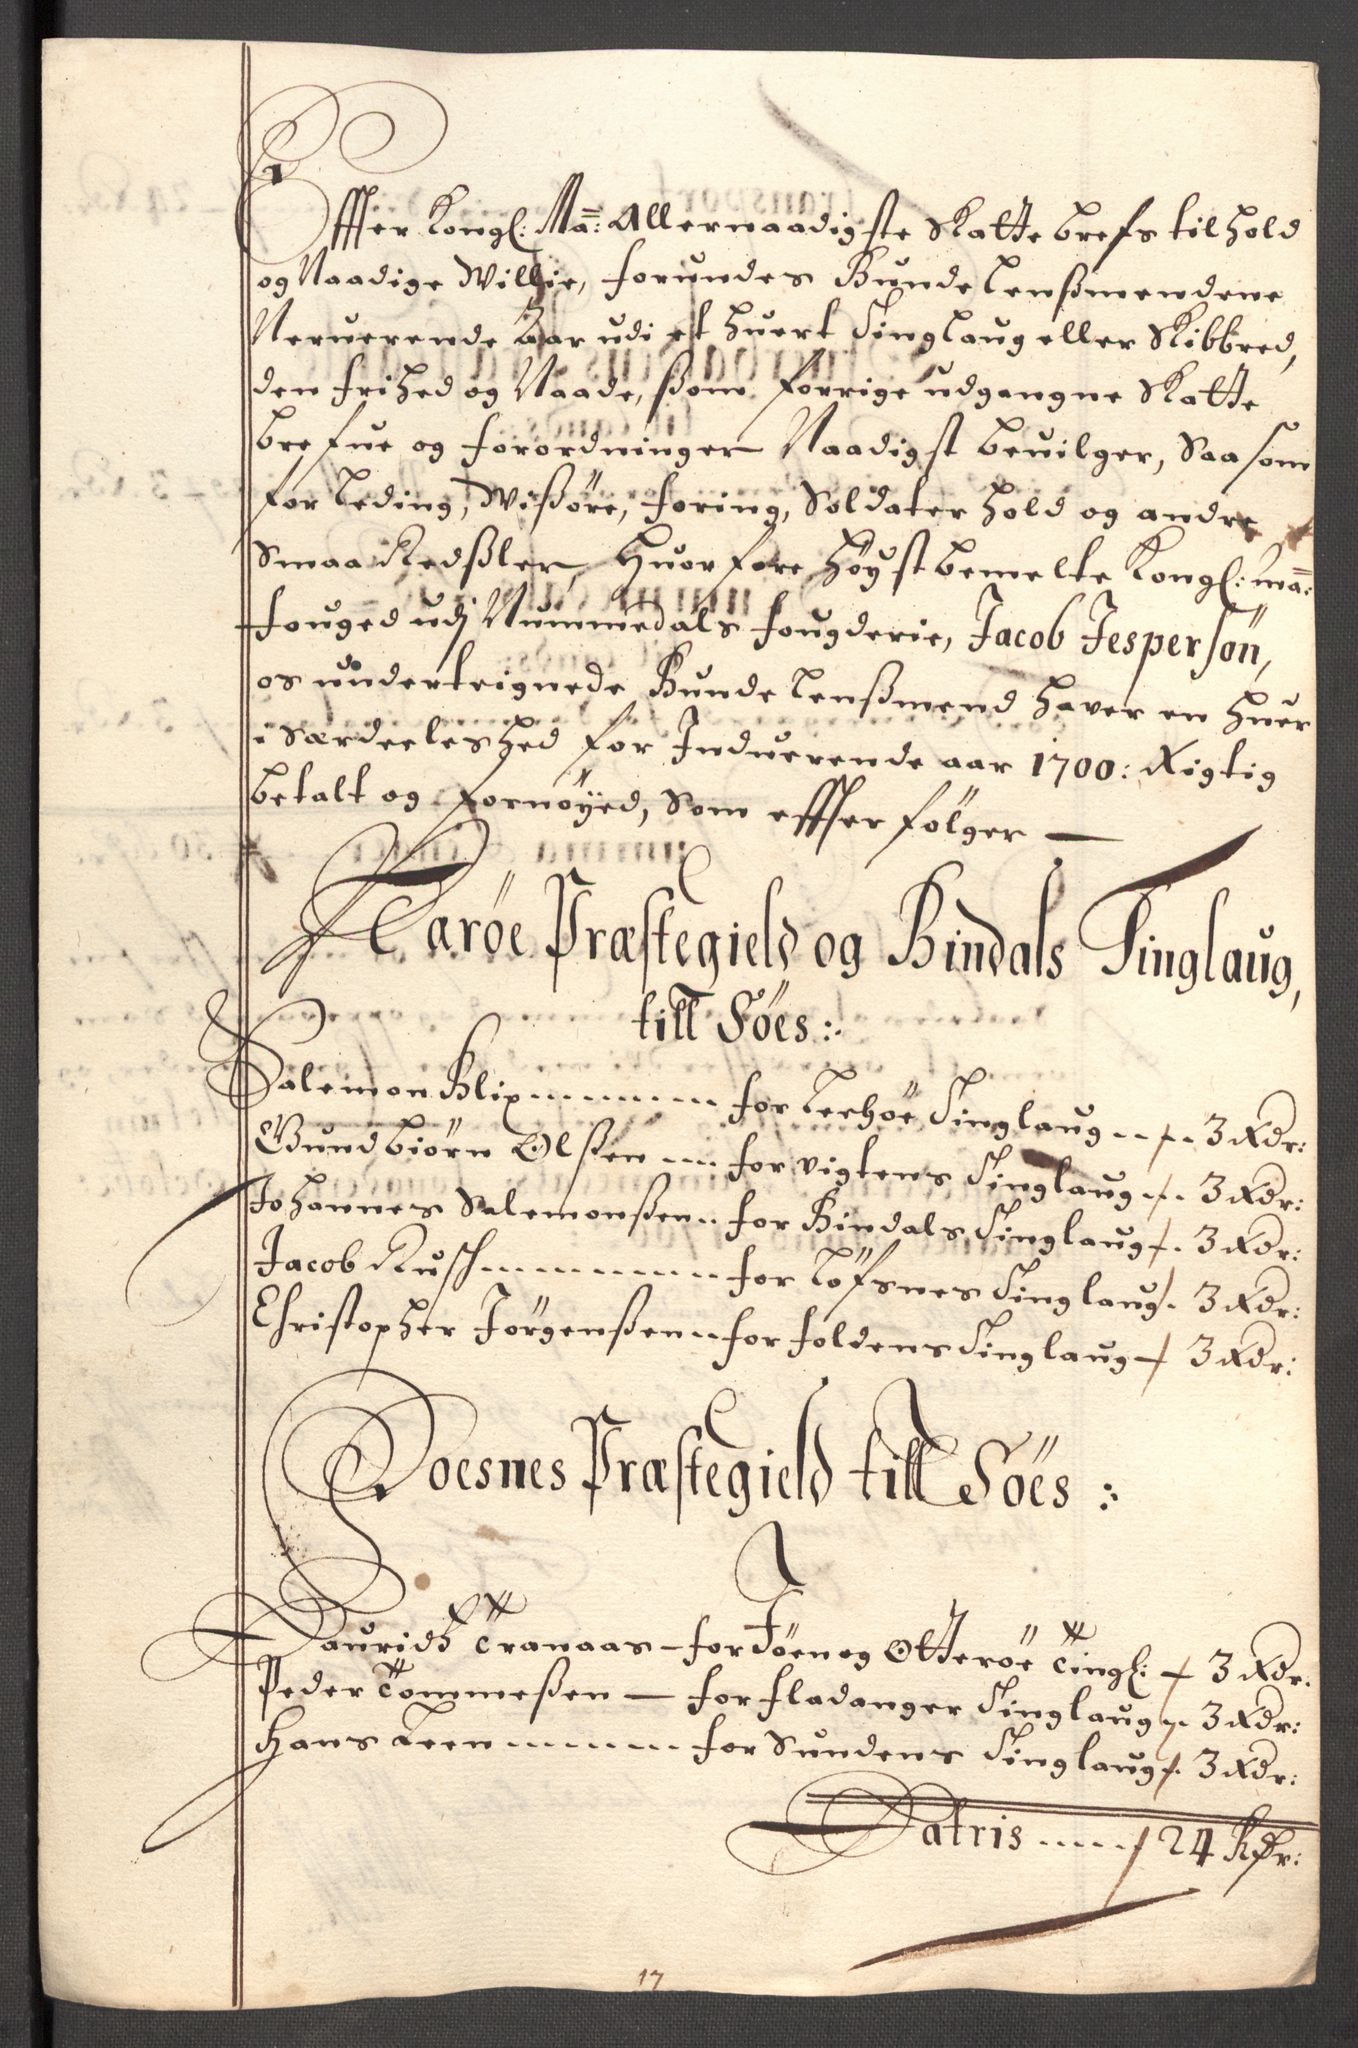 Effter Kongl: Ma: Allernaadigste Skatte brefs tilhold
og Naadige Willie, forundes Bunde Lensmendene
Neruerende Aar udi et huert Tinglaug eller Skibbred,
den frihed og Naade, som forrige udgangne Skatte
brefue og forordninger Naadigst beuilger, Saasom
for Leding, Wissöre, foring, Soldaterhold og andre
Smaa Redssler, Huorfore höystbemelte Kongl: Ma:
fouged udj Nummedals fougderie, Jacob Jespersön,
os underteignede Bunde Lensmend haver en huer
i Særdeeleshed for Induerende aar 1700: Rigtig
betalt og fornöyed, Som effter fölger
Naröe Præstegield og Bindals Tinglaug,
till Söes:
Salemon Blix for Leehöe Tinglaug 3 Rdr:
Gundbiörn Olssen for vigtens Tinglaug 3 Rdr:
Johannes Salemonssen for Bindals Tinglaug 3 Rdr:
Jacob Rusch for Löfsnes Tinglaug 3 Rdr:
Christopher Jörgenssen for foldens Tinglaug 3 Rdr:
Foesnes Præstegield till Söes:
Lauridtz Tranaas for Söen og Otteröe Tingl: 3 Rdr:
Peder Tommessen for fladanger Tinglaug 3 Rdr:
Hans Leen for Sundens Tinglaug 3 Rdr:
Latris 24 Rdr:
17